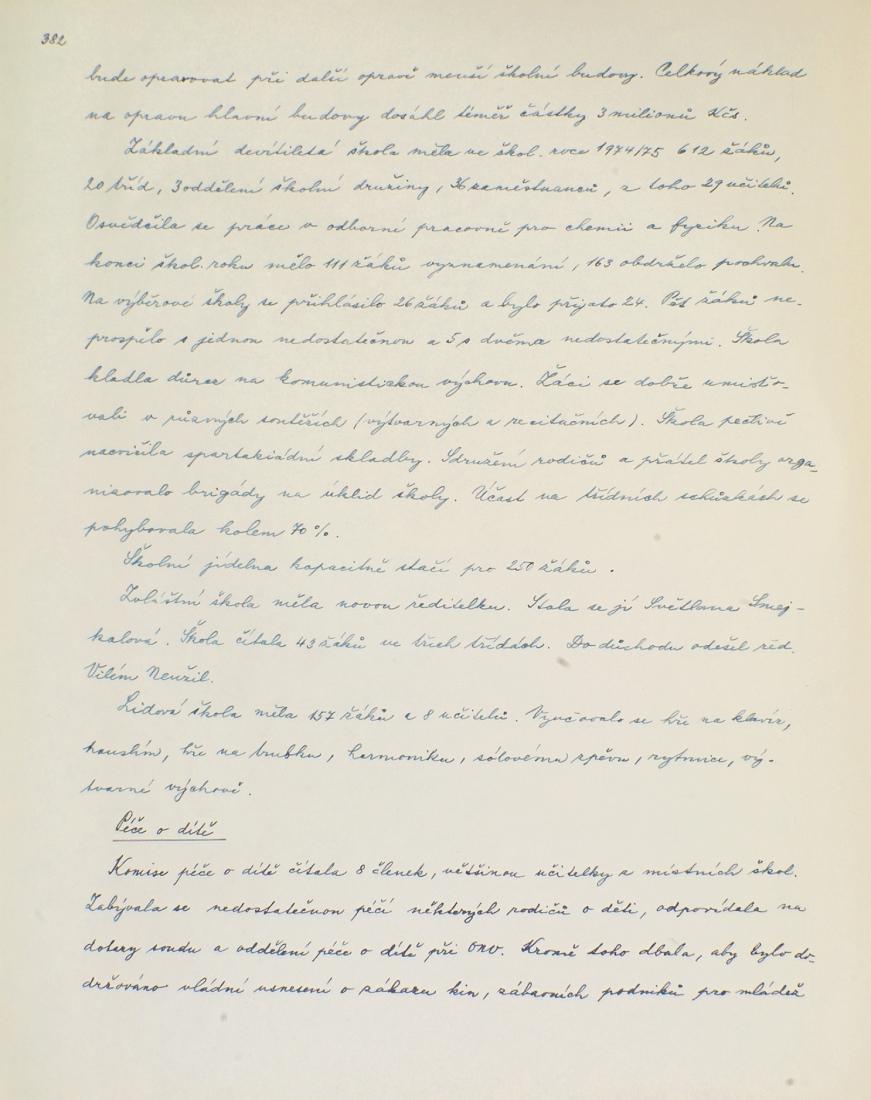 382
bude opravovat při další opravě menší školní budovy. Celkový náklad
na opravu hlavní budovy dosáhl téměř částky 3 milionů Kčs.
Základní devítiletá škola měla ve škol. roce 1974/75 612 žáků,
20 tříd, 3 oddělení školní družiny, 36 zaměstnanců, z toho 29 učitelů.
Osvědčila se práce v odborné pracovně pro chemii a fyziku. Na
konci škol. roku mělo 111 žáků vyznamenání, 163 obdrželo pochvalu.
Na výběrové školy se přihlásilo 26 žáků a bylo přijato 24. Pět žáků ne-
prospělo s jednou nedostatečnou a 5 s dvěma nedostatečnými. Škola
kladla důraz na komunistickou výchovu. Žáci se dobře umisťo-
vali v různých soutěžích (výtvarných a recitačních). Škola pečlivě
nacvičila spartakiádní skladby. Sdružení rodičů a přátel školy orga-
nisovalo brigády na úklid školy. Účast na třídních schůzkách se
pohybovala kolem 70 %.
Školní jídelna kapacitně stačí pro 250 žáků.
Zvláštní škola měla novou ředitelku. Stala se jí Světlana Smej-
kalová. Škola čítala 43 žáků ve třech třídách. Do důchodu odešel řed.
Vilém Neužil.
Lidová škola měla 157 žáků a 8 učitelů. Vyučovalo se hře na klavír,
houslím, hře na trubku, harmoniku, sólovému zpěvu, rytmice, vý-
tvarné výchově.
Péče o dítě
Komise péče o dítě čítala 8 členek, většinou učitelky z místních škol.
Zabývala se nedostatečnou péčí některých rodičů o děti, odpovídala na
dotazy soudu a oddělení péče o dítě při ONV. Kromě toho dbala, aby bylo do-
držováno vládní usnesení o zákazu kin, zábavních podniků pro mládež